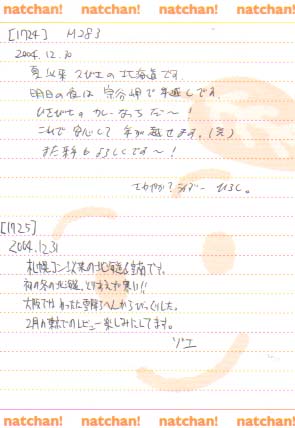 natchan! natchan! natchan! natchan!
[1724] H283
2004.12.30
夏以来2びきの北海道です。
明日の夜は宗谷岬で年越しです。
ひさびさのカレーなっちだ〜!
これで安心して年が越せます。(笑)
また来年もよろしくです〜!
さわやか?ライダー ひろし。
[1725]
2004.12.31
札幌コンサ以来の北海道&室蘭です。
初の冬の北海道、とりあえず寒い!!
大阪でかわった安倍さんからびっくりした。
2月の東京でのレビュー楽しみにしてます。
ゾエ
natchan! natchan! natchan! natchan!